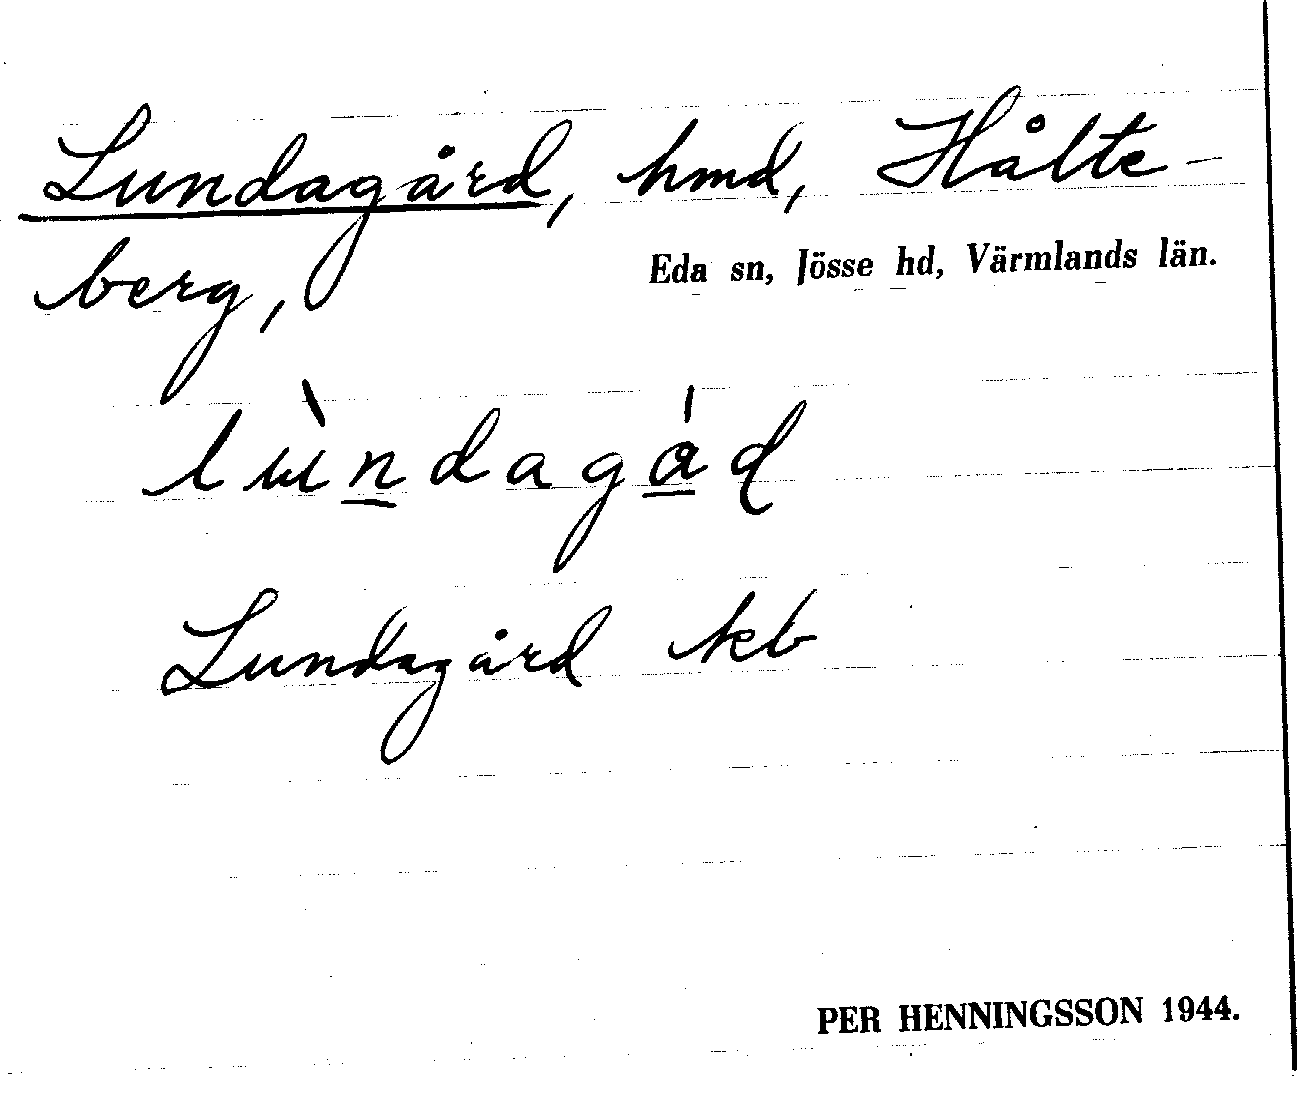 Lundagård, hmd, Hålte-
berg,
Eda sn, Jösse hd, Värmlands län.
lùndagád
Lundagård kb
PER HENNINGSSON 1944.